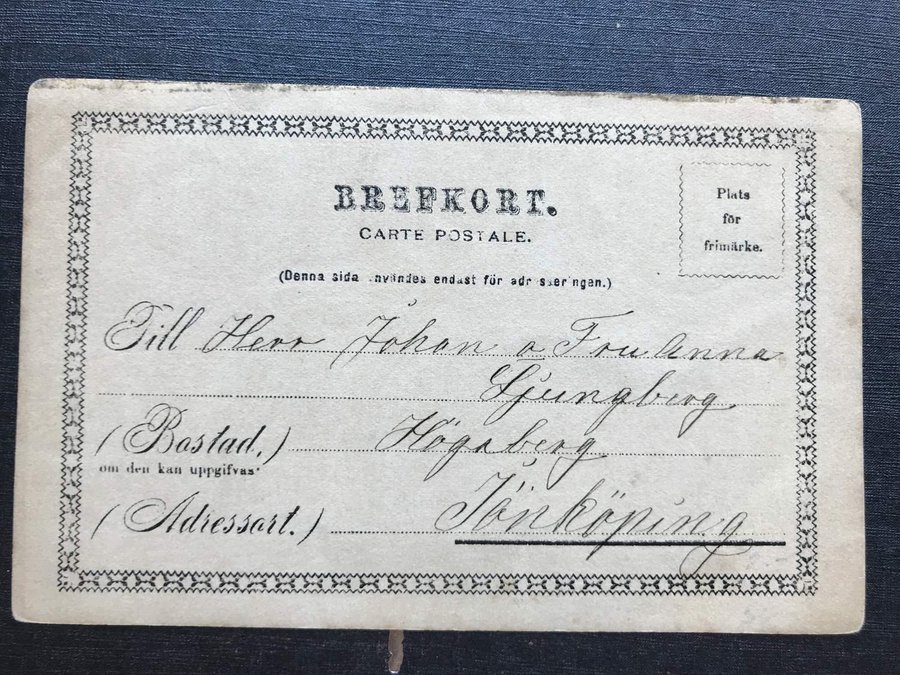 BREFKORT.
CARTE POSTALE.
(Denna sida användes endast för adresseringen.)
Plats
för
frimärke.
Till Herr Johan o Fru Anna
Ljungberg
(Bostad.) Högaberg
om den kan uppgifvas
(Adressort.) Jönköping